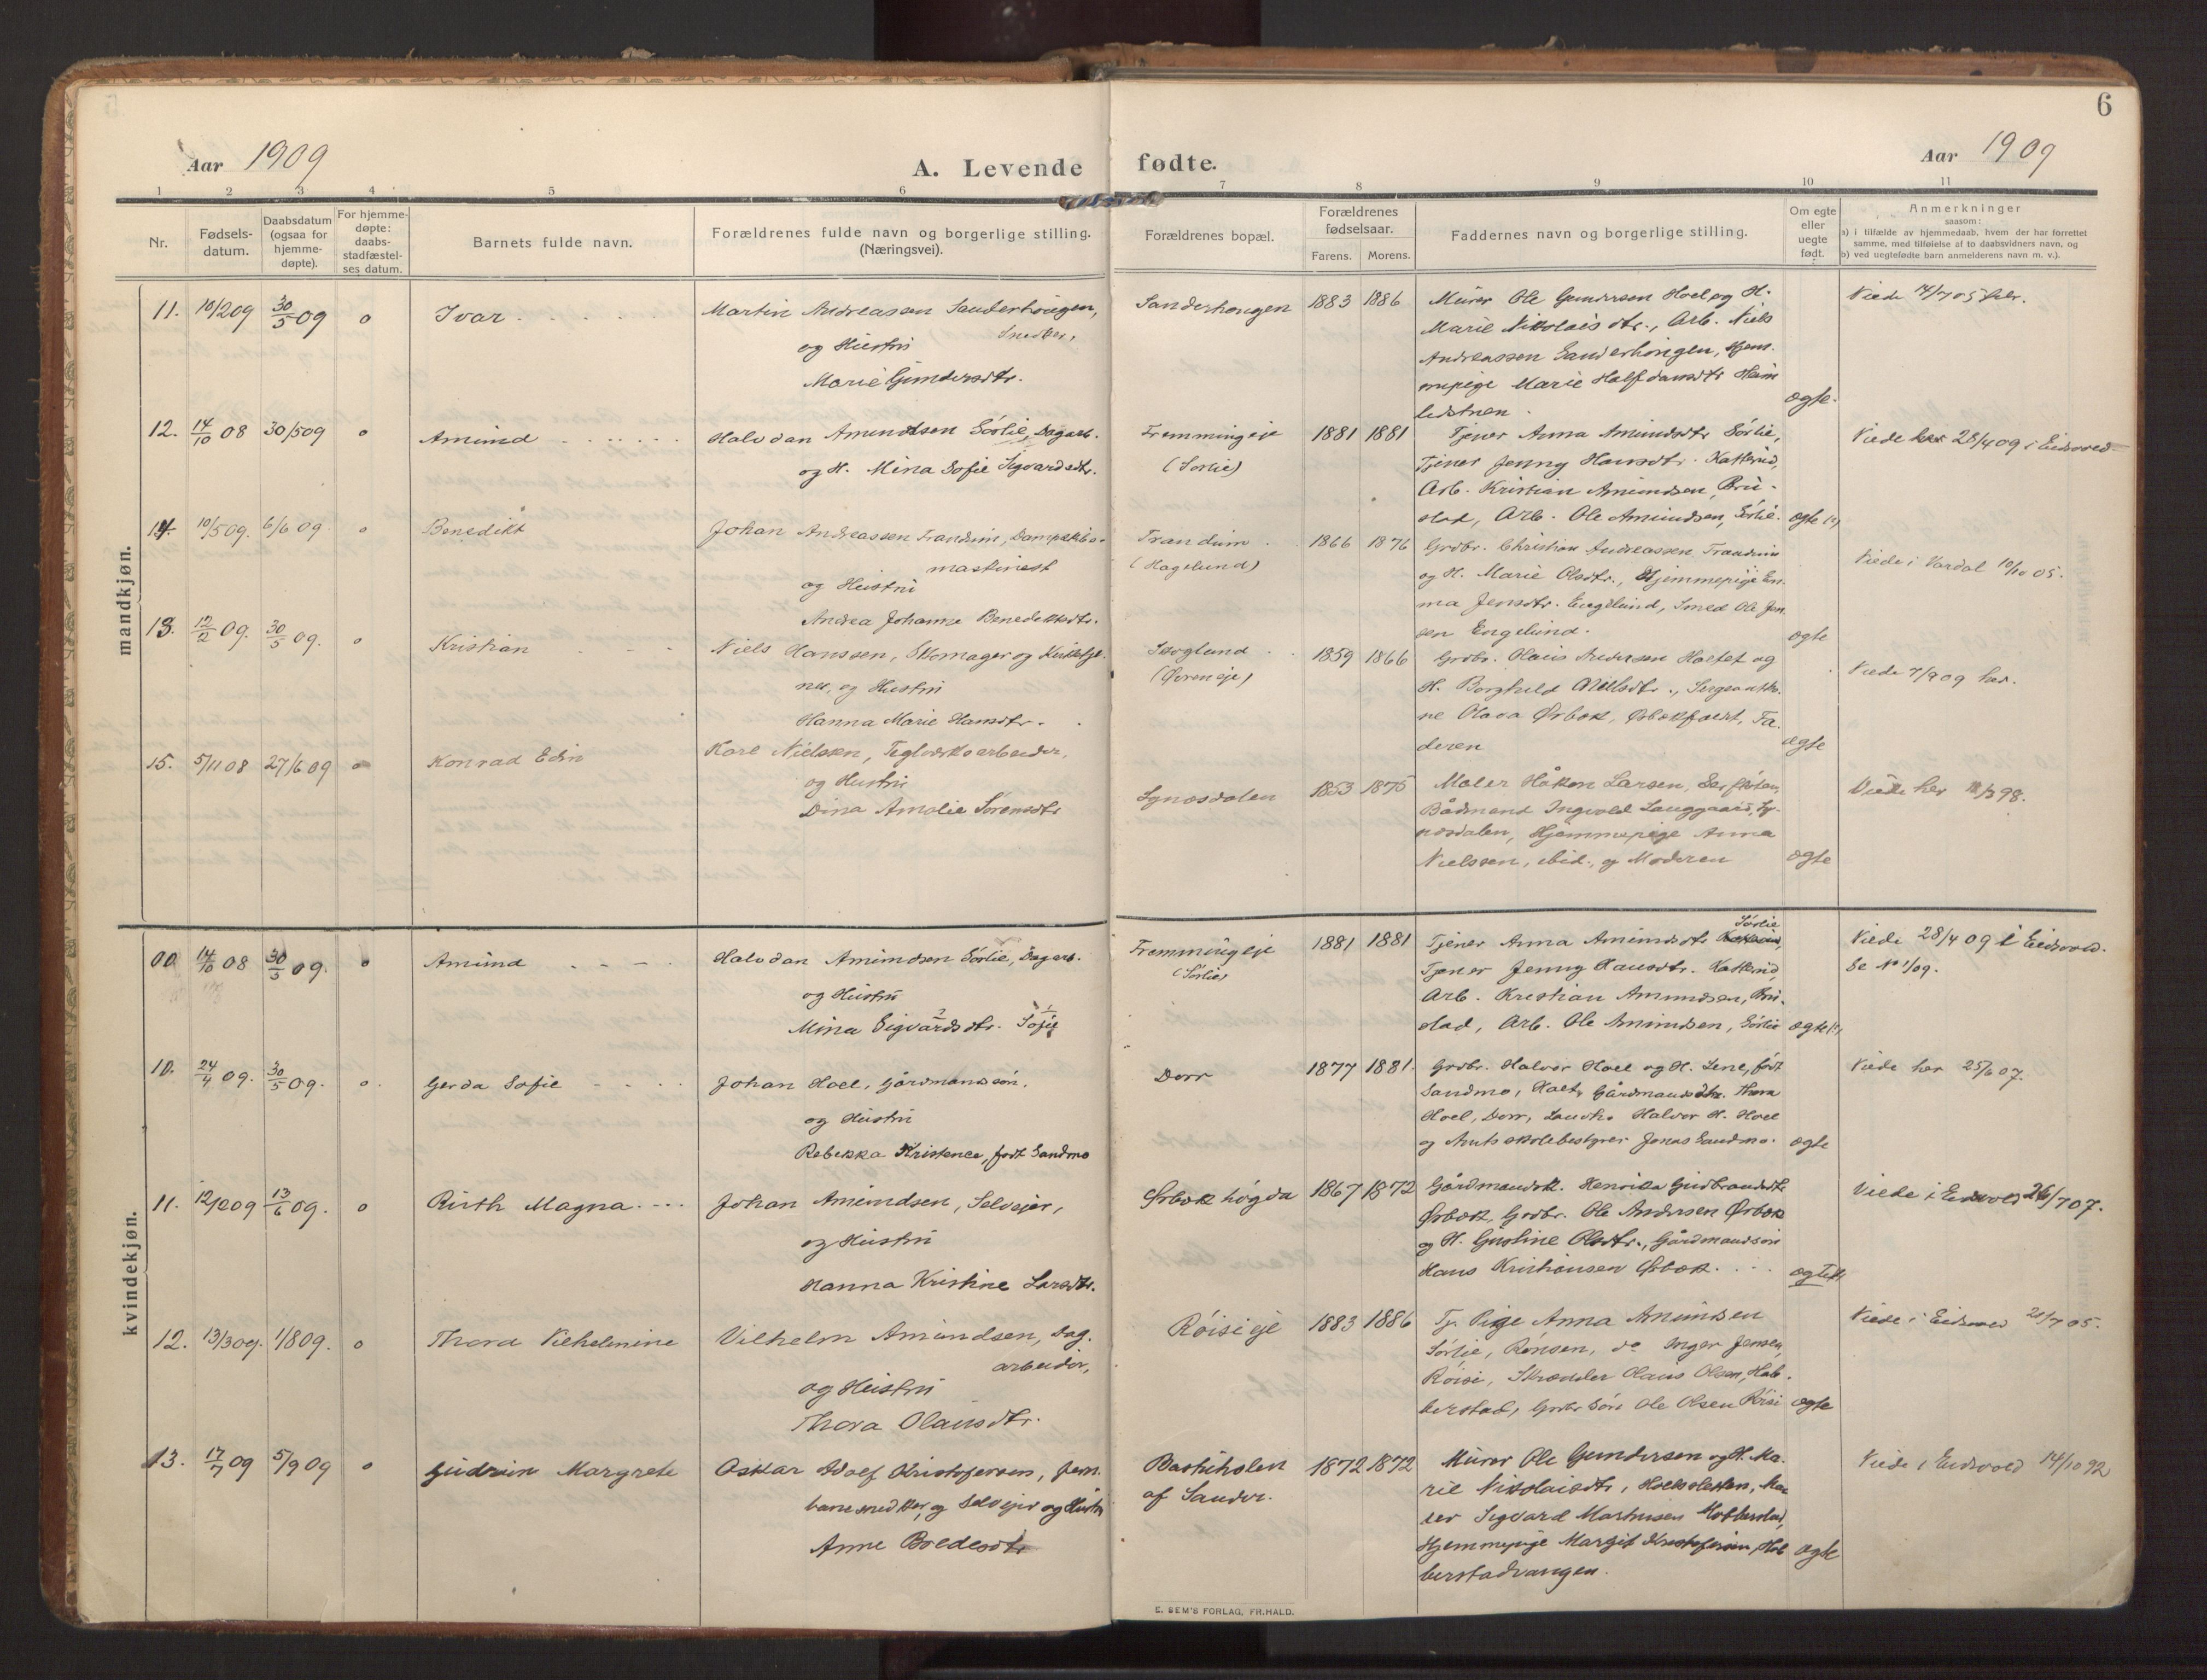 6
Aar 1909
A. Levende fødte.
Aar 1909
1 2 3 4 5 6 7 8 9 10 11
Nr.
Fødsels-
datum.
Daabsdatum
(ogsaa for
hjemme-
døpte).
For hjemme-
døpte:
daabs-
stadfæstel-
ses datum.
Barnets fulde navn.
Forældrenes fulde navn og borgerlige stilling.
(Næringsvei).
Forældrenes bopæl.
Forældrenes
fødselsaar.
Farens. Morens.
Faddernes navn og borgerlige stilling.
Om egte
eller
uegte
født.
Anmerkninger
saasom:
a) i tilfælde av hjemmedaab, hvem der har forrettet
samme, med tilføielse af to daabsvidners navn, og
b) ved uegtefødte barn anmelderens navn m. v.).
mandkjøn.
11. 10/2 09 30/5 09 o Ivar
Martin Andreasen Sanderhougen,
Snedker,
og Hustru
Marie Gundersdtr.
Sanderhougen 1883 1886
Murer Ole Gundersen Hoel og H.
Marie Nikolaisdtr., Arb. Niels
Andreassen Sanderhougen, Hjem-
mepige Marie Halfdansdtr
ægte.
12. 14/10 08 30/5 09 o Amund
Halvdan Amundsen Sørlie, Dagarb.
og H. Mina Sofie Sigvardsdtr.
Fremmingeje
(Sørlie)
1881 1881
Tjener Anna Amundsdtr Sørlie,
Tjener Jenny Hansdtr. Katterud,
Arb. Kristian Amundsen, Bru-
stad, Arb. Ole Amundsen, Sørlie.
ægte
Viede her 28/4 09 i Eidsvold
14. 10/5 09. 6/6 09. o Benedikt
Johan Andreassen Trandum, Dampskibs-
maskinist
og Hustru
Andrea Johanne Benediktsdtr.
Trandum
(Hagelund)
1866 1876
Grdbr. Christian Andreassen Trandum
og H. Marie Olsdtr., Hjemmepige Em-
ma Jensdtr. Engelund, Smed Ole Jen
sen Engelund.
ægte
Viede i Vardal 10/10 05.
13. 12/2 09. 30/5 09. o Kristian
Niels Hanssen, Skomager og Kirketje-
ner, og Hustru
Hanna Marie Hansdtr.
Skoglund
1859 1866
Grdbr. Olaus Andersen Holtet og
H. Borghild Nielsdtr., Sergeantko-
ne Olava Ørbæk, Fa-
deren
ægte
Viede 7/9 09 her.
15. 5/11 08 27/6 09 o Konrad Edin
Karl Nielsen, Teglverksarbeider,
og Hustru
Dina Amalie Sørensdtr
Synosdalen 1853 1875
Maler Håkon Larsen,
Bådmand Ingvold Langgaard, Sy-
nosdalen, Hjemmepige Anna
Nielssen, ibid., og Moderen
ægte
Viede her
kvindekjøn.
00 14/10 08 30/5 09. o Amund
Halvdan Amundsen Sørlie, Dagarb.
og Hustru
Mina Sigvardsdtr. Sofie
Fremmingeje
(Sørlie)
1881 1881
Sørlie
Tjener Anna Amundsdtr
Tjener Jenny Hansdtr. Katterud,
Arb. Kristian Amundsen, Bru-
stad, Arb. Ole Amundsen, Sørlie
ægte
Viede 28/4 09 i Eidsvold.
Se No 1/09.
10. 24/4 09. 30/5 09. o. Gerda Sofie
Johan Hoel, Gårdmandssøn,
og Hustru
Rebekka Kristence, født Sandmo
Dorr 1877 1881.
Grdbr. Halvor Hoel og H. Lene, født
Sandmo, Holt, Gårdmandsdtr. Thora
Hoel, Dorr, Landh. Halvor H. Hoel
og Amtsskolebestyrer Jonas Sandmo.
ægte
Viede her 25/6 07.
11. 12/2 09 13/6 09. o Ruth Magna
Johan Amundsen, Selvejer,
og Hustru
Hanna Kristine Larsdtr.
Ørbækhøgda 1867 1872
Gårdmandsk. Henrikka Gudbrandsdtr
Ørbæk, Grdbr. Ole Andersen Ørbæk
og H. Gustine Olsdtr., Gårdmandssøn
Hans Kristiansen Ørbæk.
Viede i Eidsvold 26/7 07.
12. 13/3 09. 1/8 09. o Thora Vilhelmine
Vilhelm Amundsen, Dag-
arbeider,
og Hustru
Thora Olausdtr.
Røisieje 1883 1886
Tj. Pige Anna Amundsen
Sørlie, Rønsen, do Inger Jensen,
Røisi, Skrædder Olaus Olsen, Hab-
berstad, Grdbr Søn Ole Olsen Røisi
ægte
Viede i Eidsvold
13. 17/7 09 5/9 09 o Gudrun Margrete
Oskar Adolf Kristofersen, Jern-
banesnedker, og Selvejer og Hustru
Anne Boldesdtr
af Sander.
1872 1872
Murer Ole Gundersen og H. Ma-
rie Nikolaisdtr, Ma
ler Sigvard Mathisen
Hjemmepige Margit Kristofersen, Hab
berstadvangen.
ægte
Viede i Eidsvold 14/10 92
E. SEM'S FORLAG, FR.HALD.